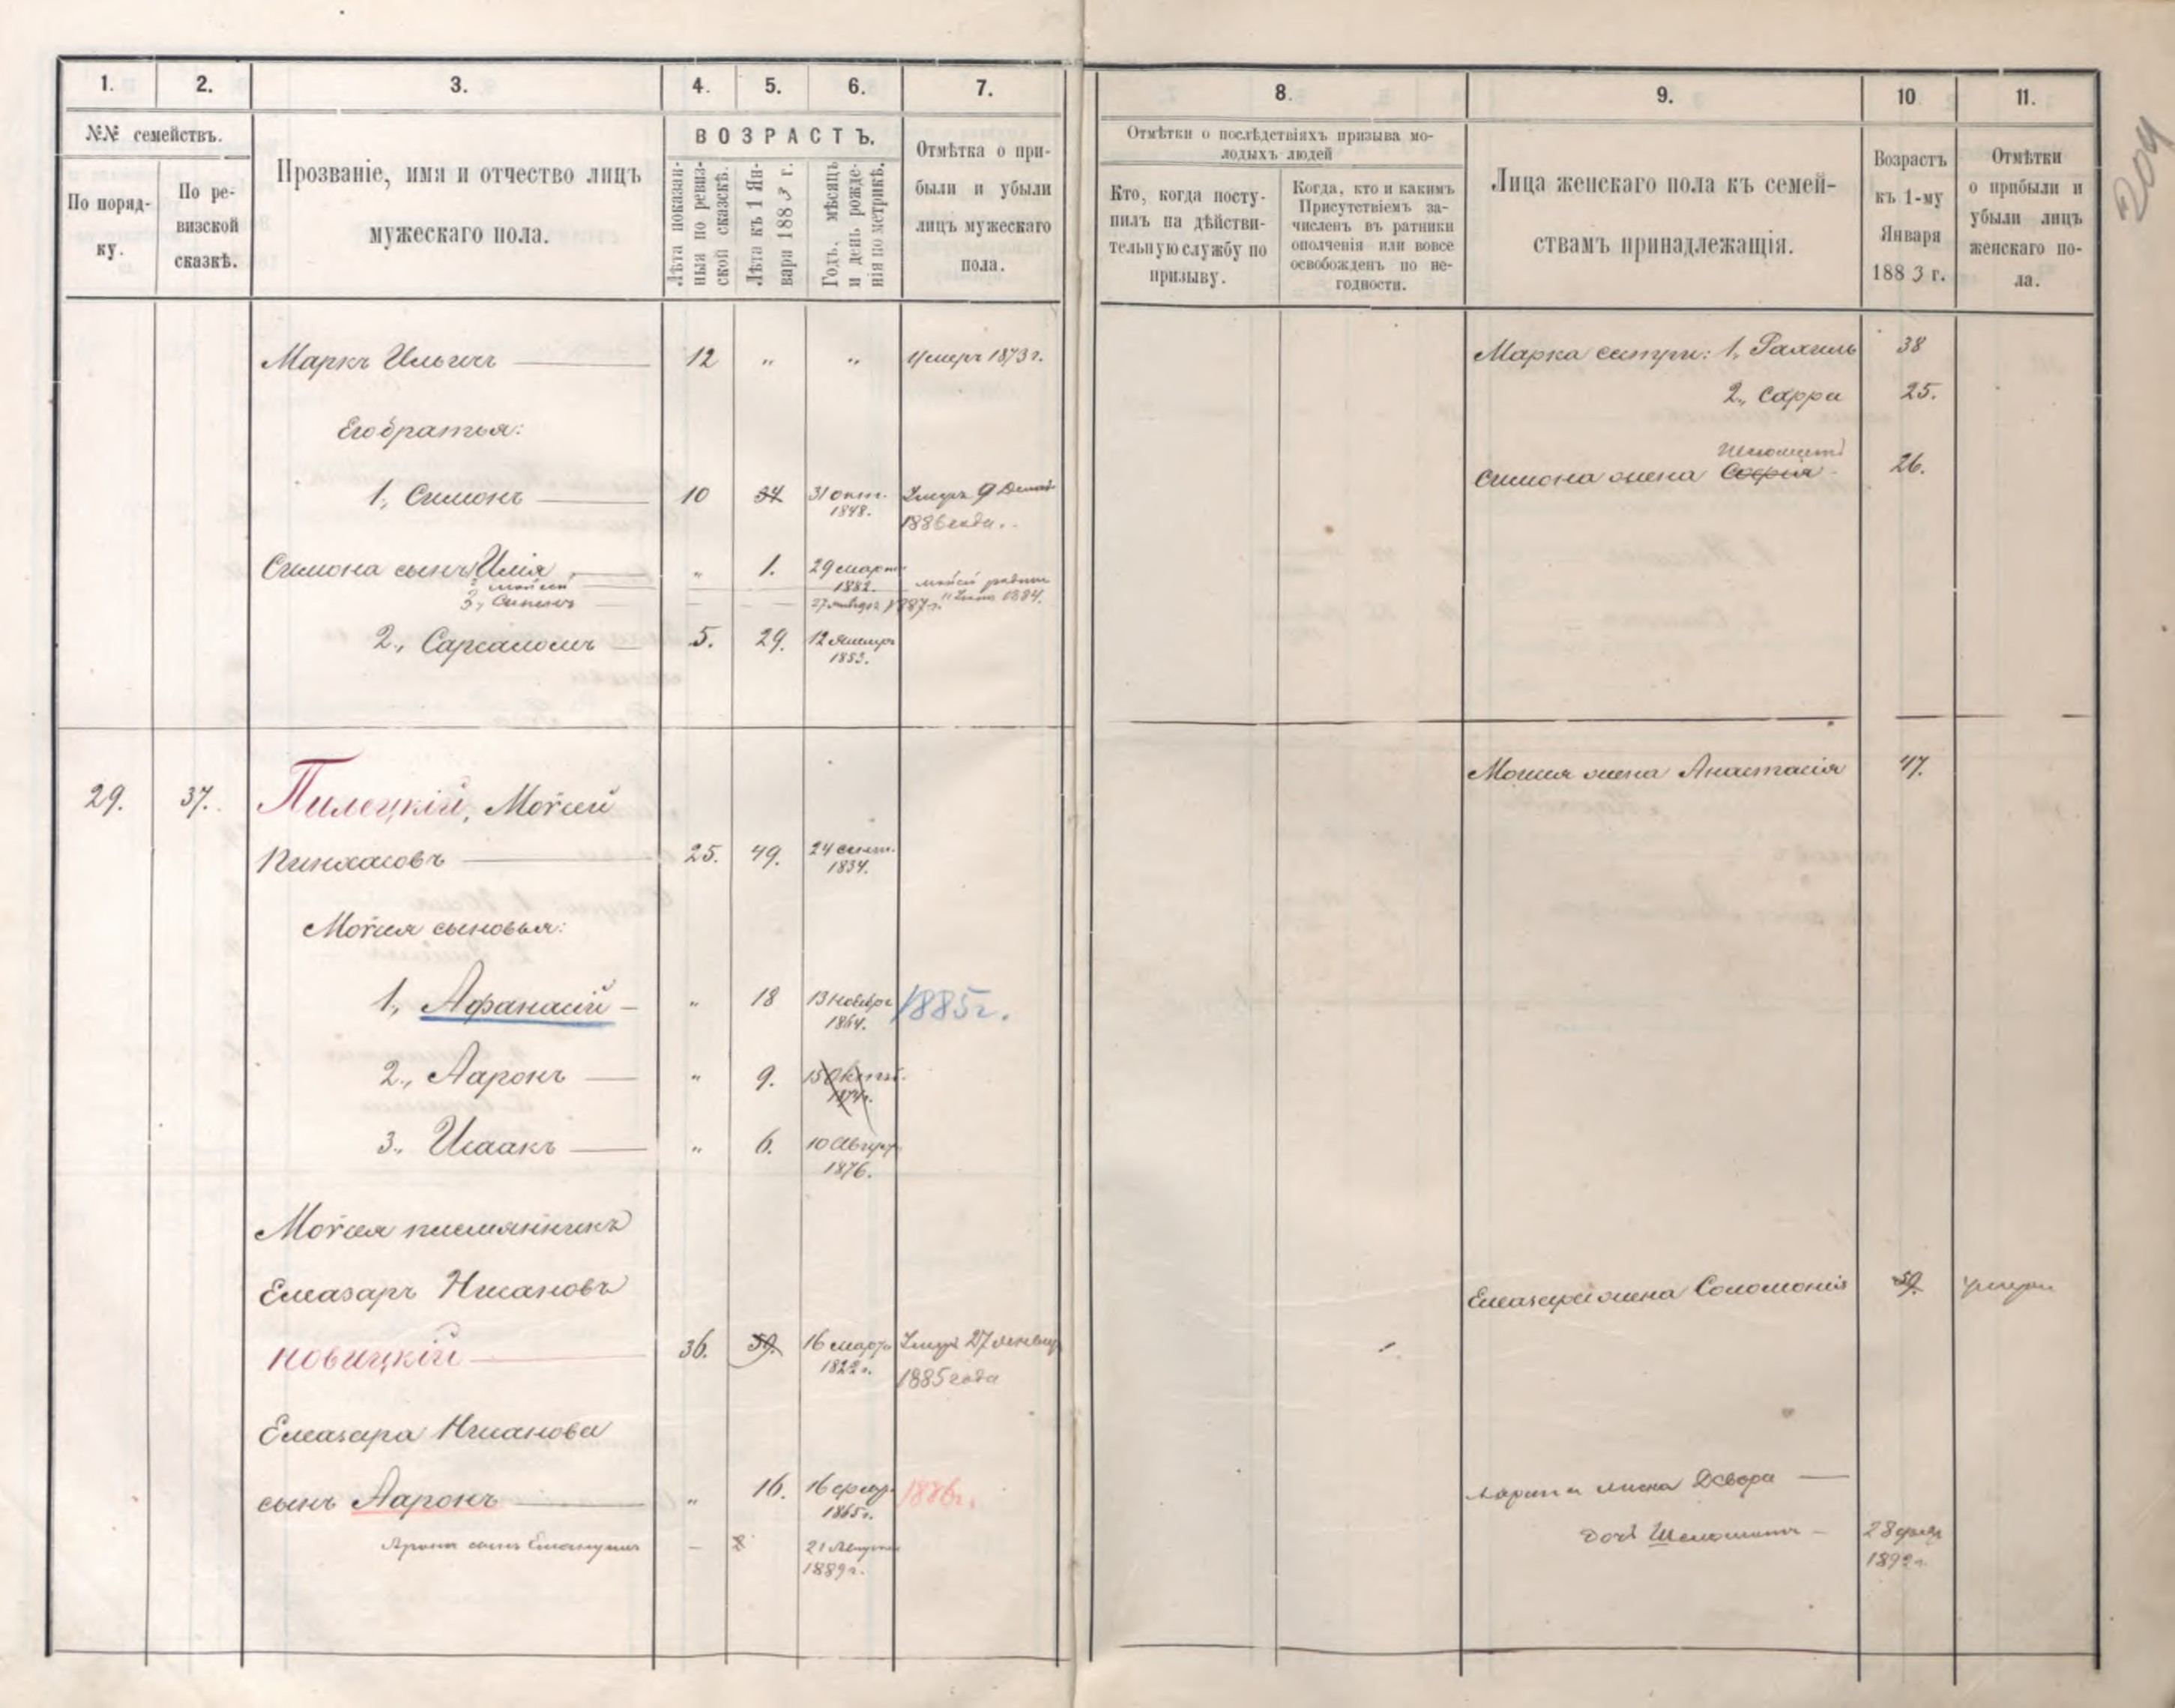 204
1. 2. 3. 4. 5. 6. 7. 8. 9. 10 11.
№№ семействъ.
По поряд-
ку.
По ре-
визской
сказкѣ.
Прозваніе, имя и отчество лицъ
мужескаго пола.
ВОЗРАСТЪ.
Лѣта показан-
ныя по ревиз-
ской сказкѣ.
Лѣта къ 1 Ян-
варя 1883 г.
Годъ, мѣсяцъ
и день рожде-
нія по метрикѣ.
Отмѣтка о при-
были и убыли
лицъ мужескаго
пола.
Отмѣтки о послѣдствіяхъ призыва мо-
лодыхъ людей
Кто, когда посту-
пилъ на дѣйстви-
тельную службу по
призыву.
Когда, кто и какимъ
Присутствіемъ за-
численъ въ ратники
ополченія или вовсе
освобожденъ по не-
годности.
Лица женскаго пола къ семей-
ствамъ принадлежащія.
Возрастъ
къ 1-му
Января
1883 г.
Отмѣтки
о прибыли и
убыли лицъ
женскаго по-
ла.
Маркъ Ильичъ 12 " " Умеръ 1873 г. Марка сестры: 1, Рахиль 38
2, Сарра 25.
Его братья:
Шеломитъ
1, Симонъ 10 34 31 окт. 1848. Умеръ 9 1886 года. Симона жена София 26.
Симона сынъ Илія " 1. 29 март 1882.
2, Мойсей Мойсей родился 1884.
3, Симонъ 27 января 1887 г.
2., 5. 29. 12 Январ 1853.
29. 37. Пилецкій, Мойсей Мойсея жена Анастасія 47.
Пинхасовъ 25. 49. 24 сент. 1834.
Мойсея сыновья:
1, Афанасій " 18 13 Ноябр 1864. 1885 г.
2., Ааронъ " 9. 15 Октяб. 1874.
3., Исаакъ " 6. 10 Август 1876.
Мойсея племянникъ
Елеазаръ Нисановъ Елеазара жена Соломонія 59. умерла
Новицкій 36. 59. 16 марта 1822 г. Умеръ 27 январ 1885 года
Елеазара Нисанова
сынъ Ааронъ " 16. 16 февр. 1865 г. 1886 г. Аарона жена Девора
Арона сынъ Емануилъ 21 Августа 1889 г. дочь Шеломитъ 28 февр 1892 г.